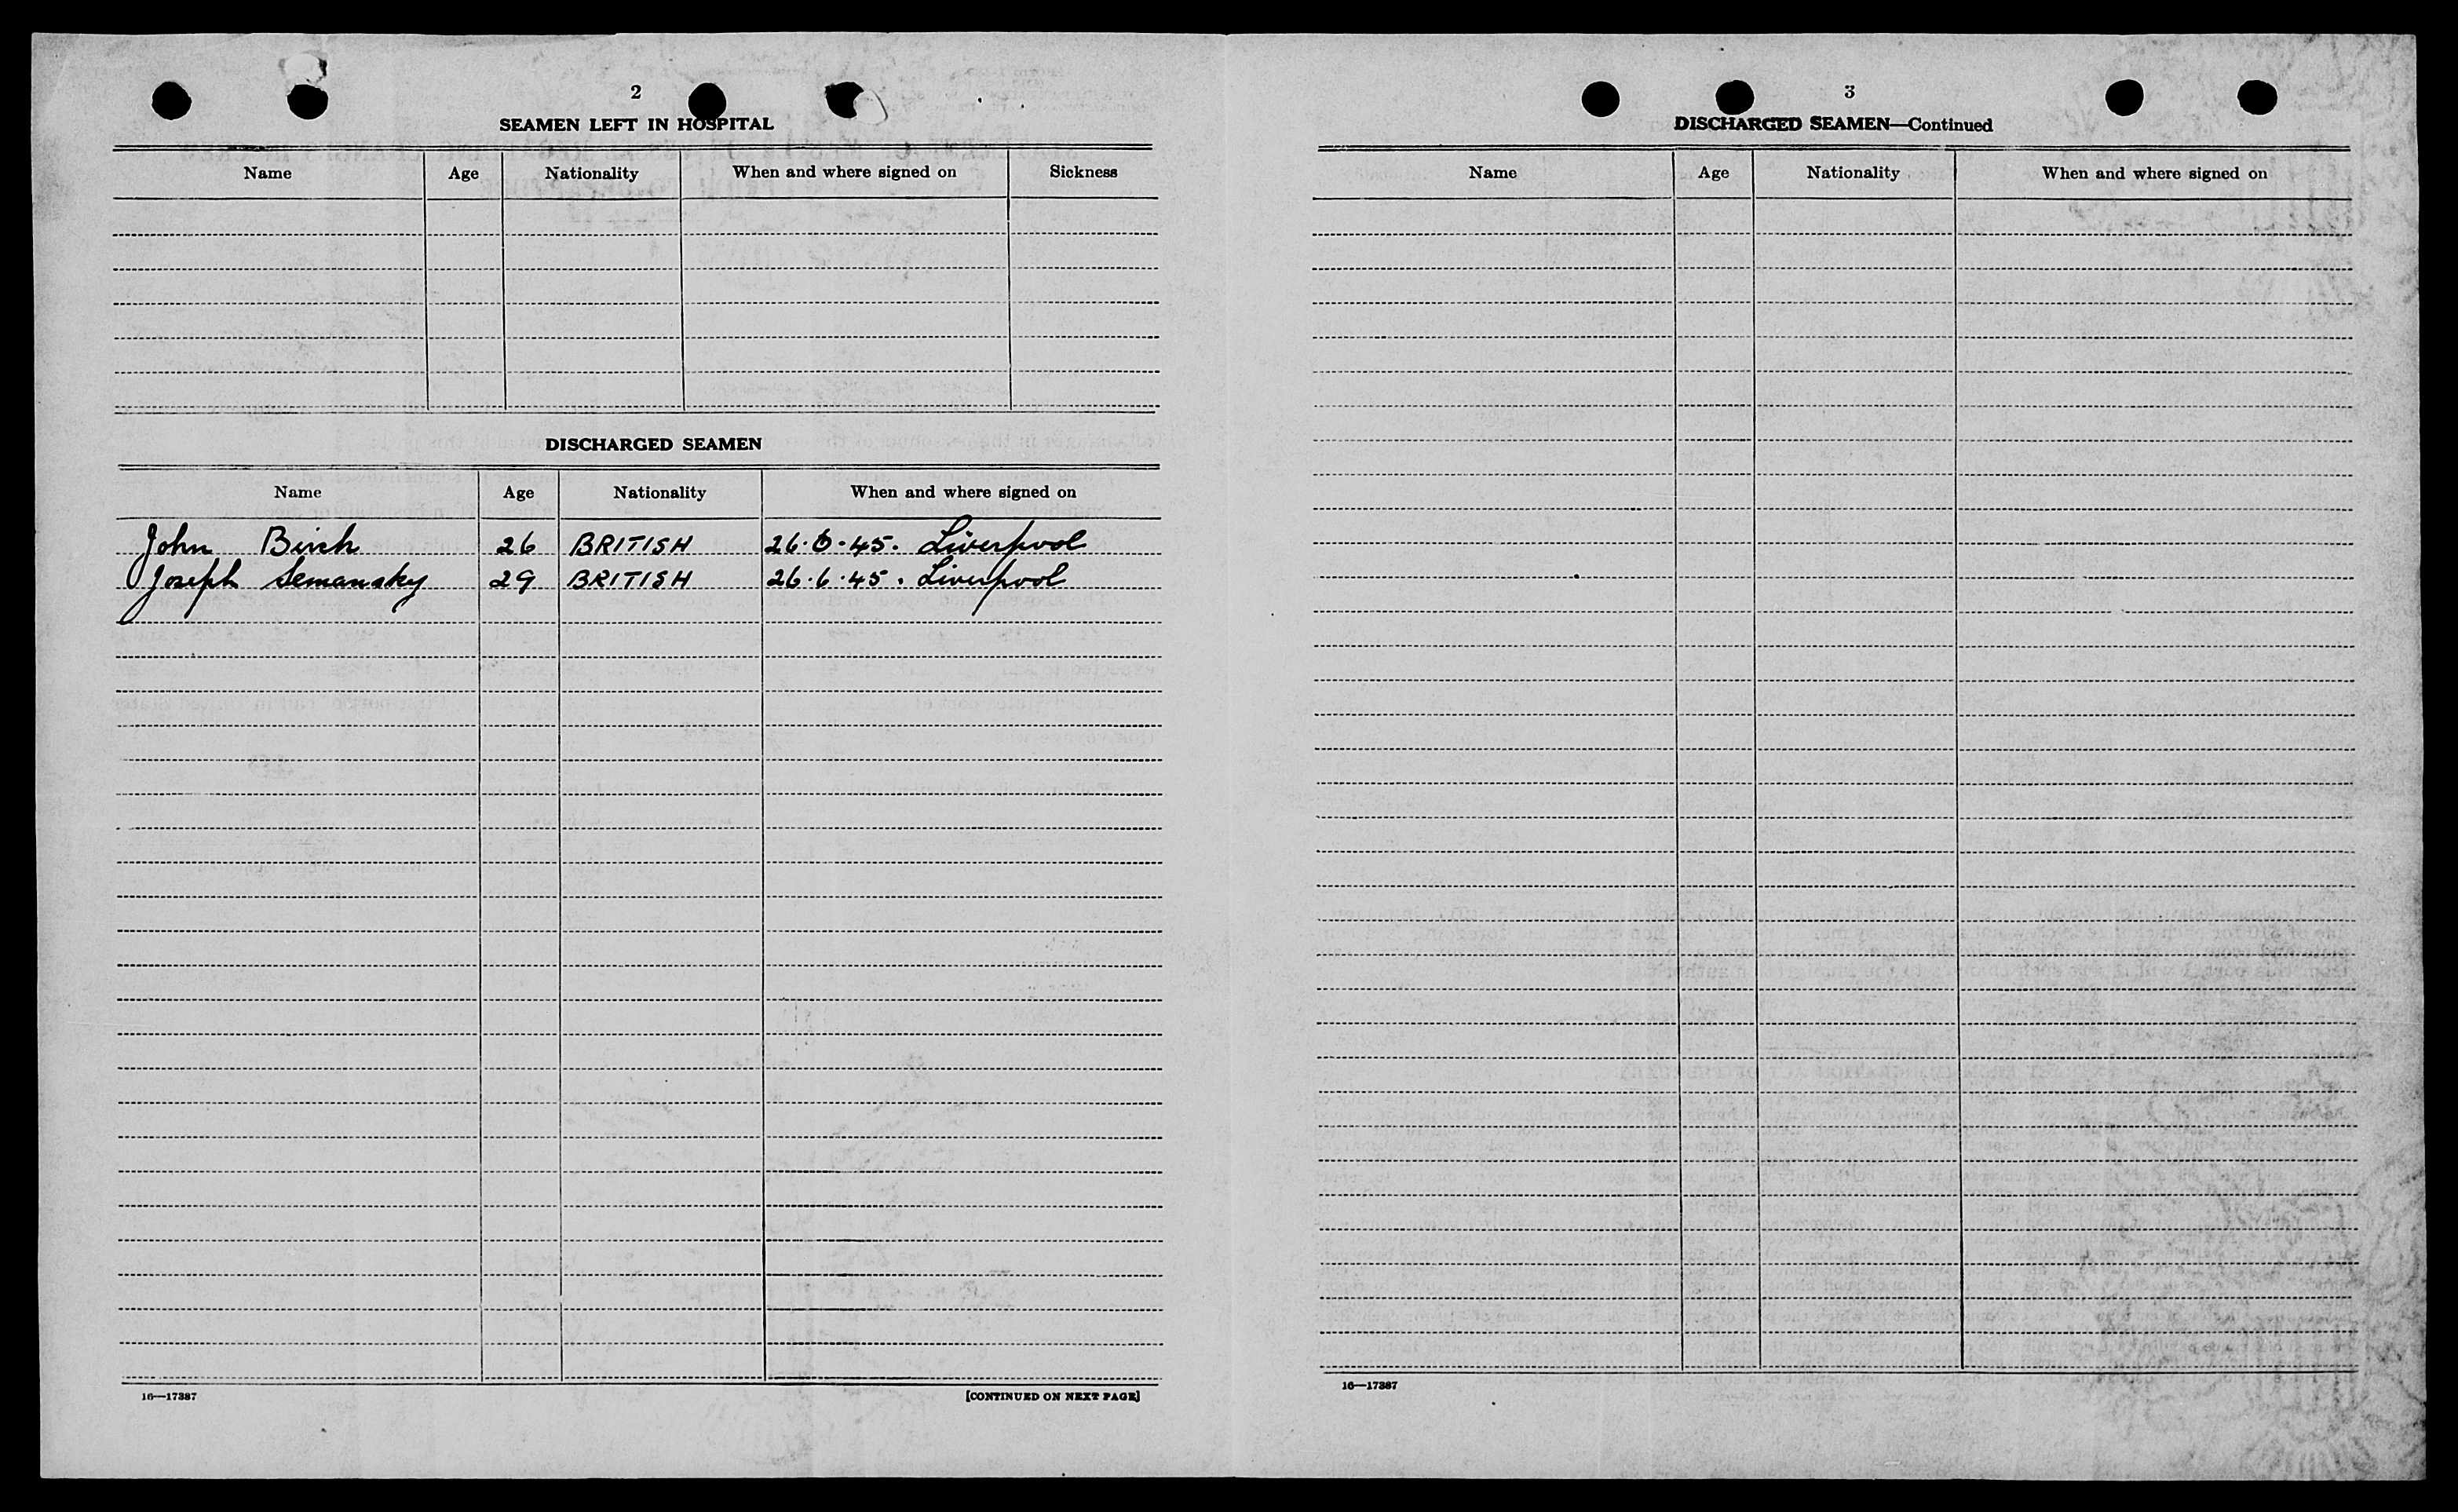 2
SEAMEN LEFT IN HOSPITAL
Name Age Nationality When and where signed on Sickness
DISCHARGED SEAMEN
Name Age Nationality When and where signed on
John Birch 26 BRITISH 26.6.45. Liverpool
Joseph Semansky 29 BRITISH 26.6.45. Liverpool
16—17387 [CONTINUED ON NEXT PAGE]
3
DISCHARGED SEAMEN—Continued
Name Age Nationality When and where signed on
16—17387